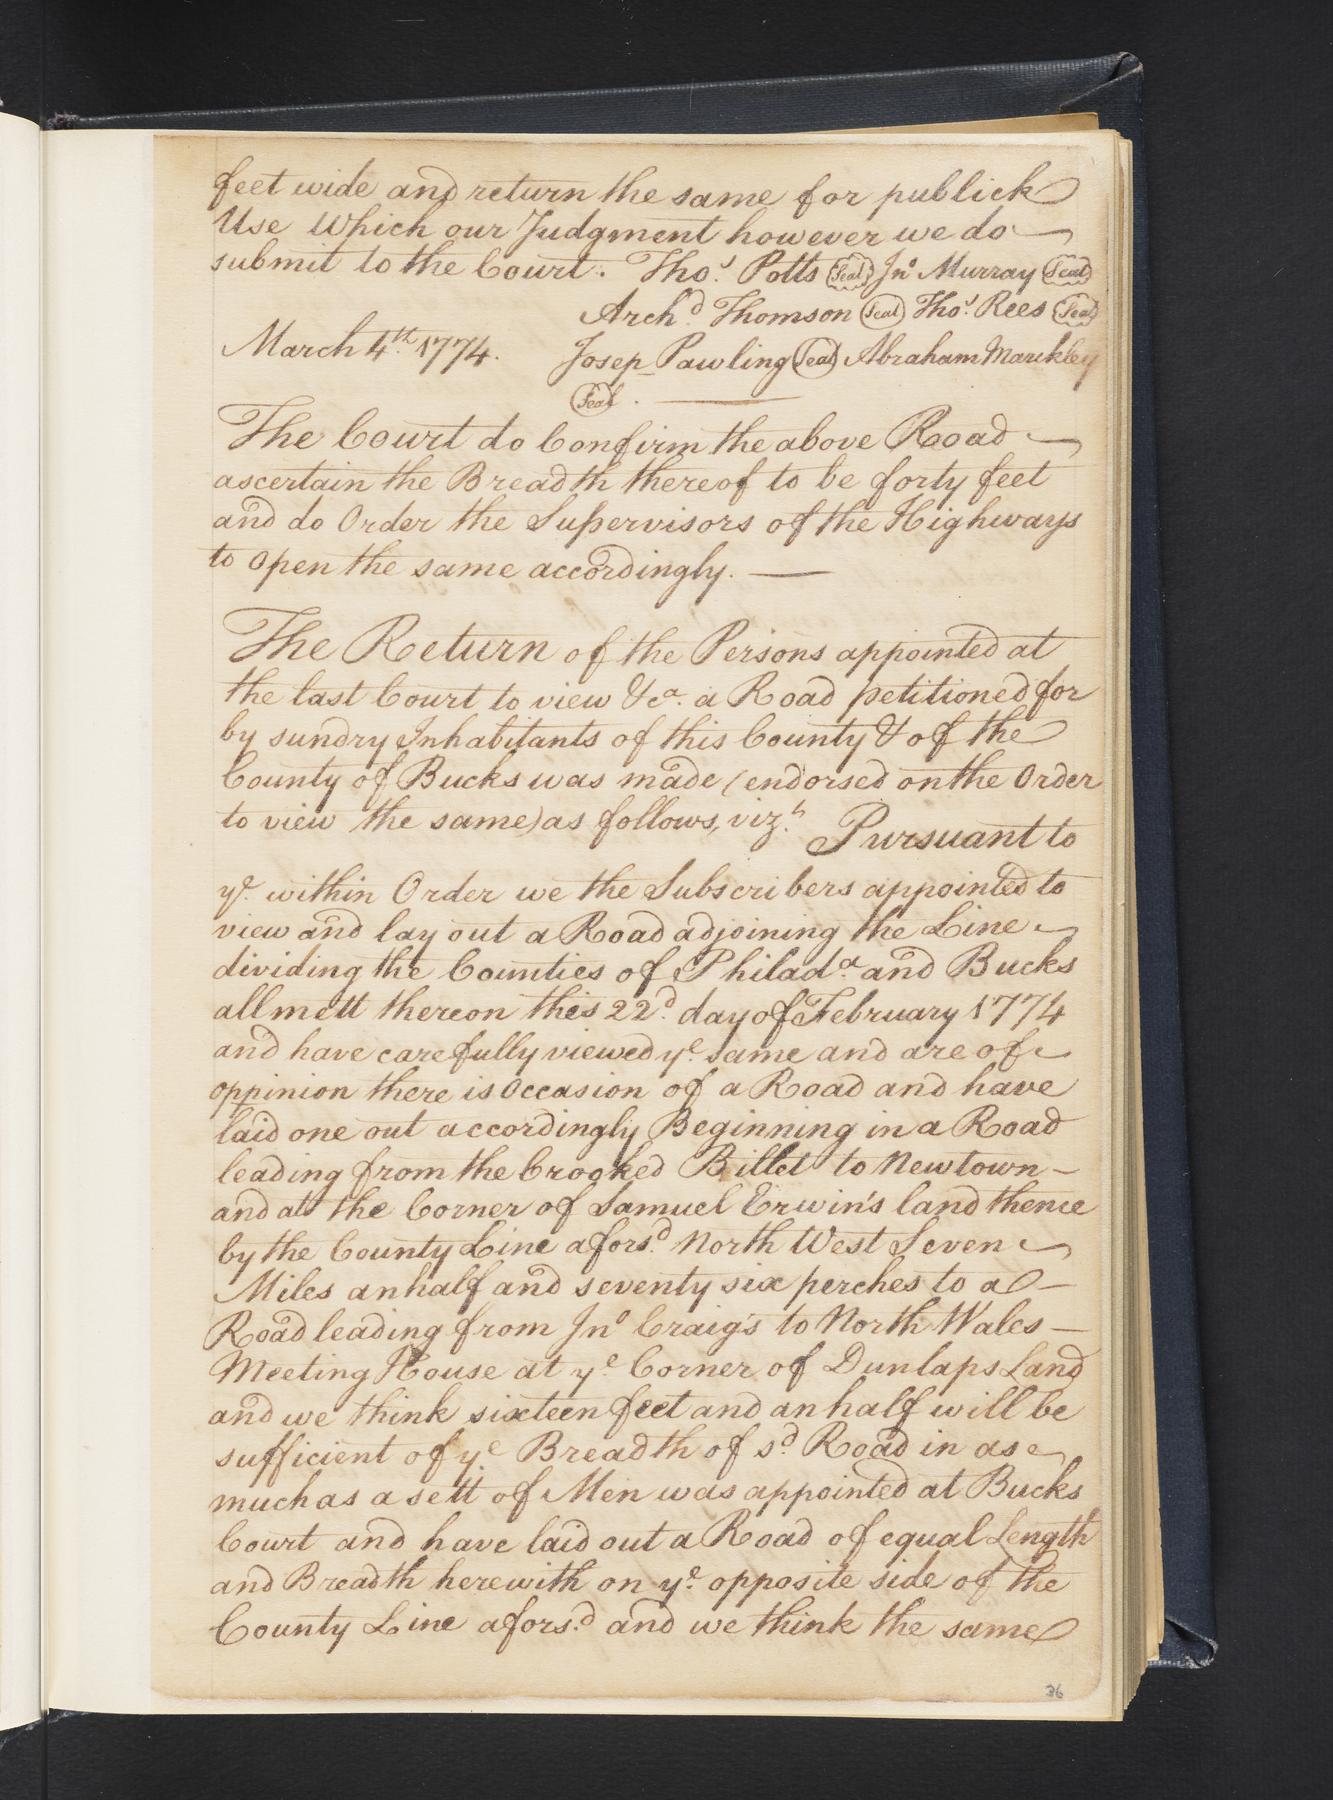 feet wide and return the same for publick
Use Which our Judgment however we do
submit to the Court. Tho.s Potts Seal Jn.o Murray Seal
Arch.d Thomson Seal Tho.s Rees Seal
March 4.th 1774. Josep Pawling Seal Abraham Marckley
Seal.
The Court do Confirm the above Road
ascertain the Breadth thereof to be forty feet
and do Order the Supervisors of the Highways
to open the same accordingly.
The Return of the Persons appointed at
the last Court to view &c.a a Road petitioned for
by sundry Inhabitants of this County & of the
County of Bucks was made (endorsed on the Order
to view the same) as follows, viz.t Pursuant to
y.e within Order we the Subscribers appointed to
view and lay out a Road adjoining the Line
dividing the Counties of Philad.a and Bucks
all mett thereon this 22.d day of February 1774
and have carefully viewed y.e same and are of
oppinion there is Occasion of a Road and have
laid one out accordingly Beginning in a Road
leading from the Crooked Billet to Newtown
and at the Corner of Samuel Erwin's land thence
by the County Line afors.d North West Seven
Miles an half and seventy six perches to a
Road leading from Jn.o Craig's to North Wales
Meeting House at y.e Corner of Dunlaps Land
and we think sixteen feet and an half will be
sufficient of y.e Breadth of s.d Road in as
much as a sett of Men was appointed at Bucks
Court and have laid out a Road of equal Length
and Breadth herewith on y.e opposite side of the
County Line afors.d and we think the same
36